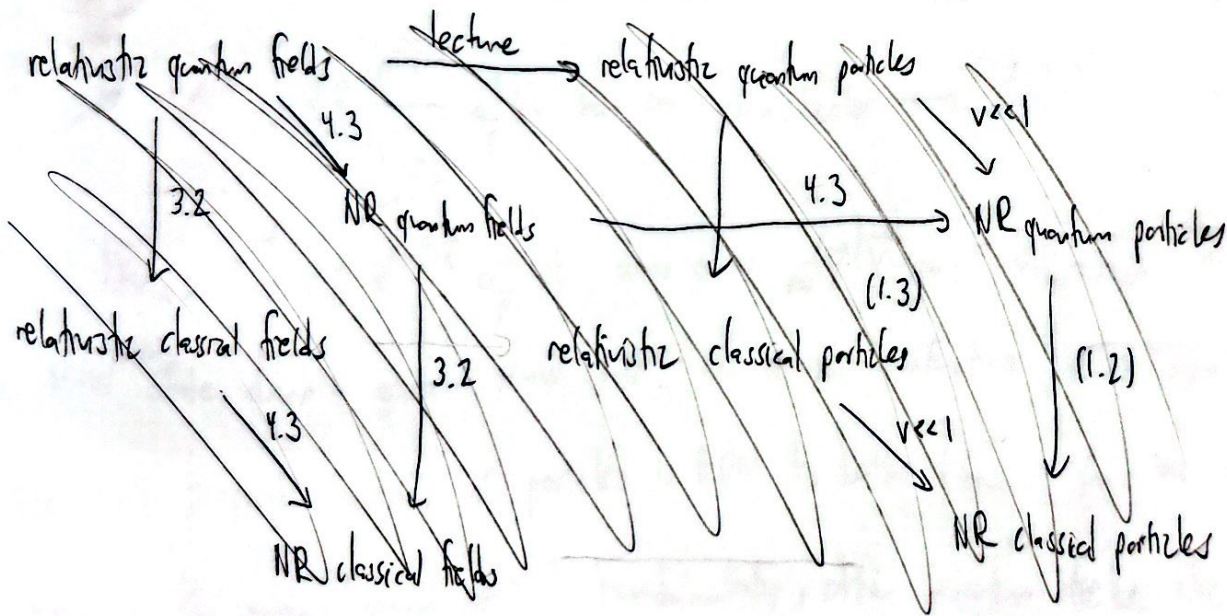 lecture
relativistic quantum fields → relativistic quantum particles
4.3 v<<1
3.2 NR quantum fields 4.3 → NR quantum particles
(1.3)
relativistic classical fields 3.2 relativistic classical particles (1.2)
4.3 v<<1
NR classical fields NR classical particles